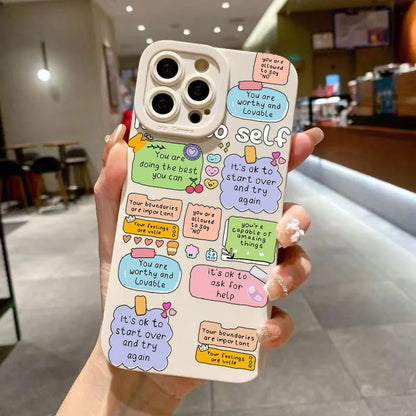 you are
allowed
to say
'NO'
You are
worthy and
Lovable
to self
You are
doing the best
you can
it's ok to
start over
and try
again
Your boundaries
are important
Your feelings
are valid
you are
allowed
to say
'NO'
you're
capable of
amazing
things
You are
worthy and
Lovable
it's ok to
ask for
help
it's ok to
start over
and try
again
Your boundaries
are important
Your feelings
are valid